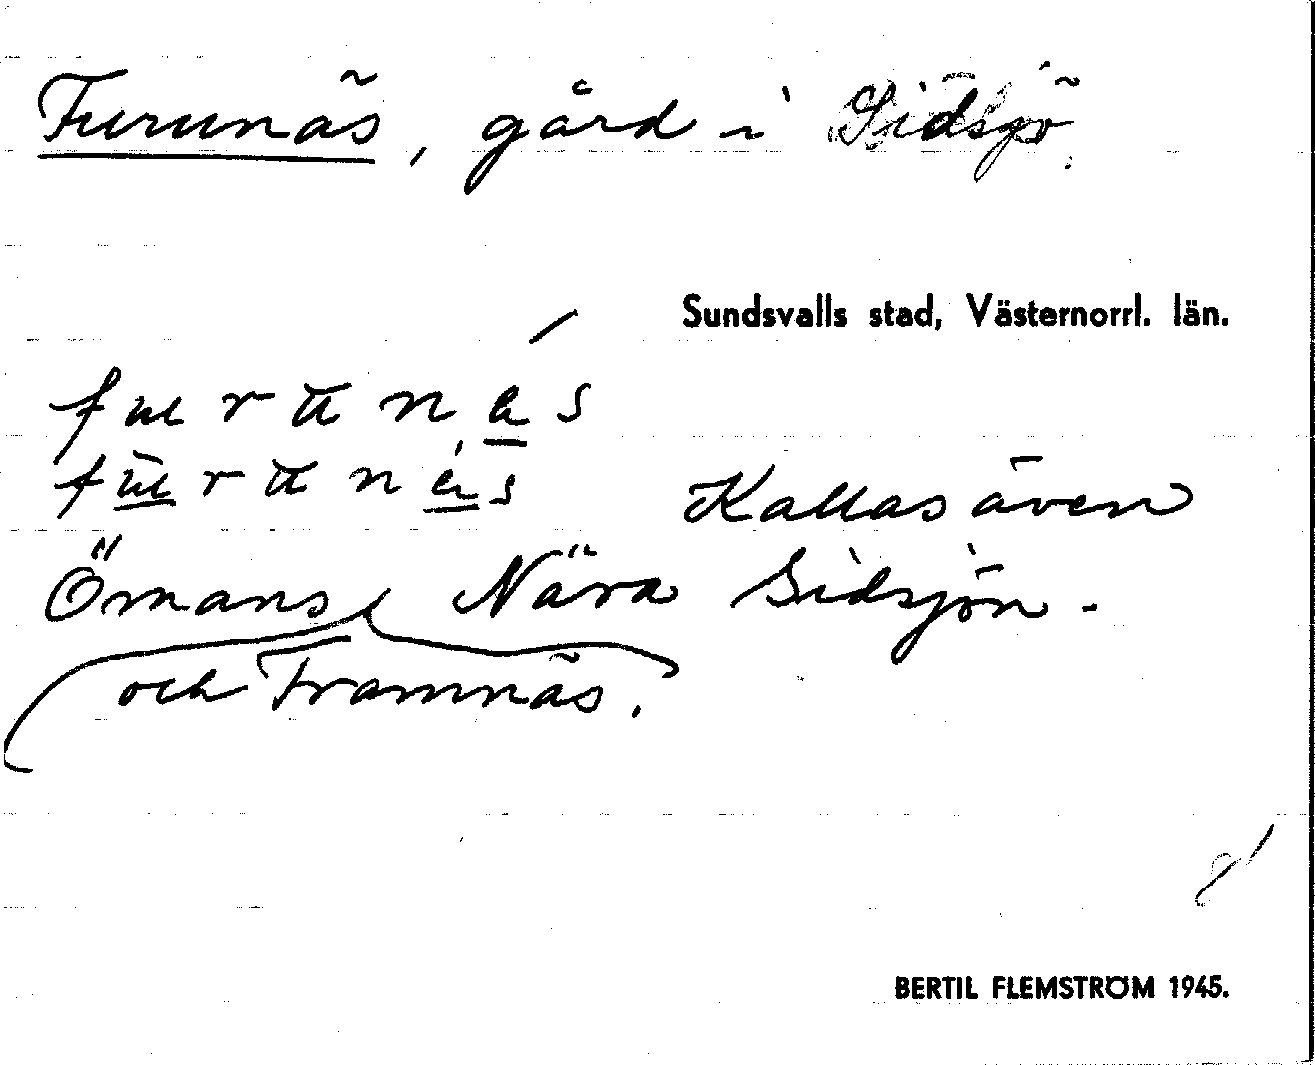 Furunäs, gård i Sidsjö.
Sundsvalls stad, Västernorrl. län.
Kallas även
Ömans och Framnäs. Nära Sidsjön.-
BERTIL FLEMSTRÖM 1945.